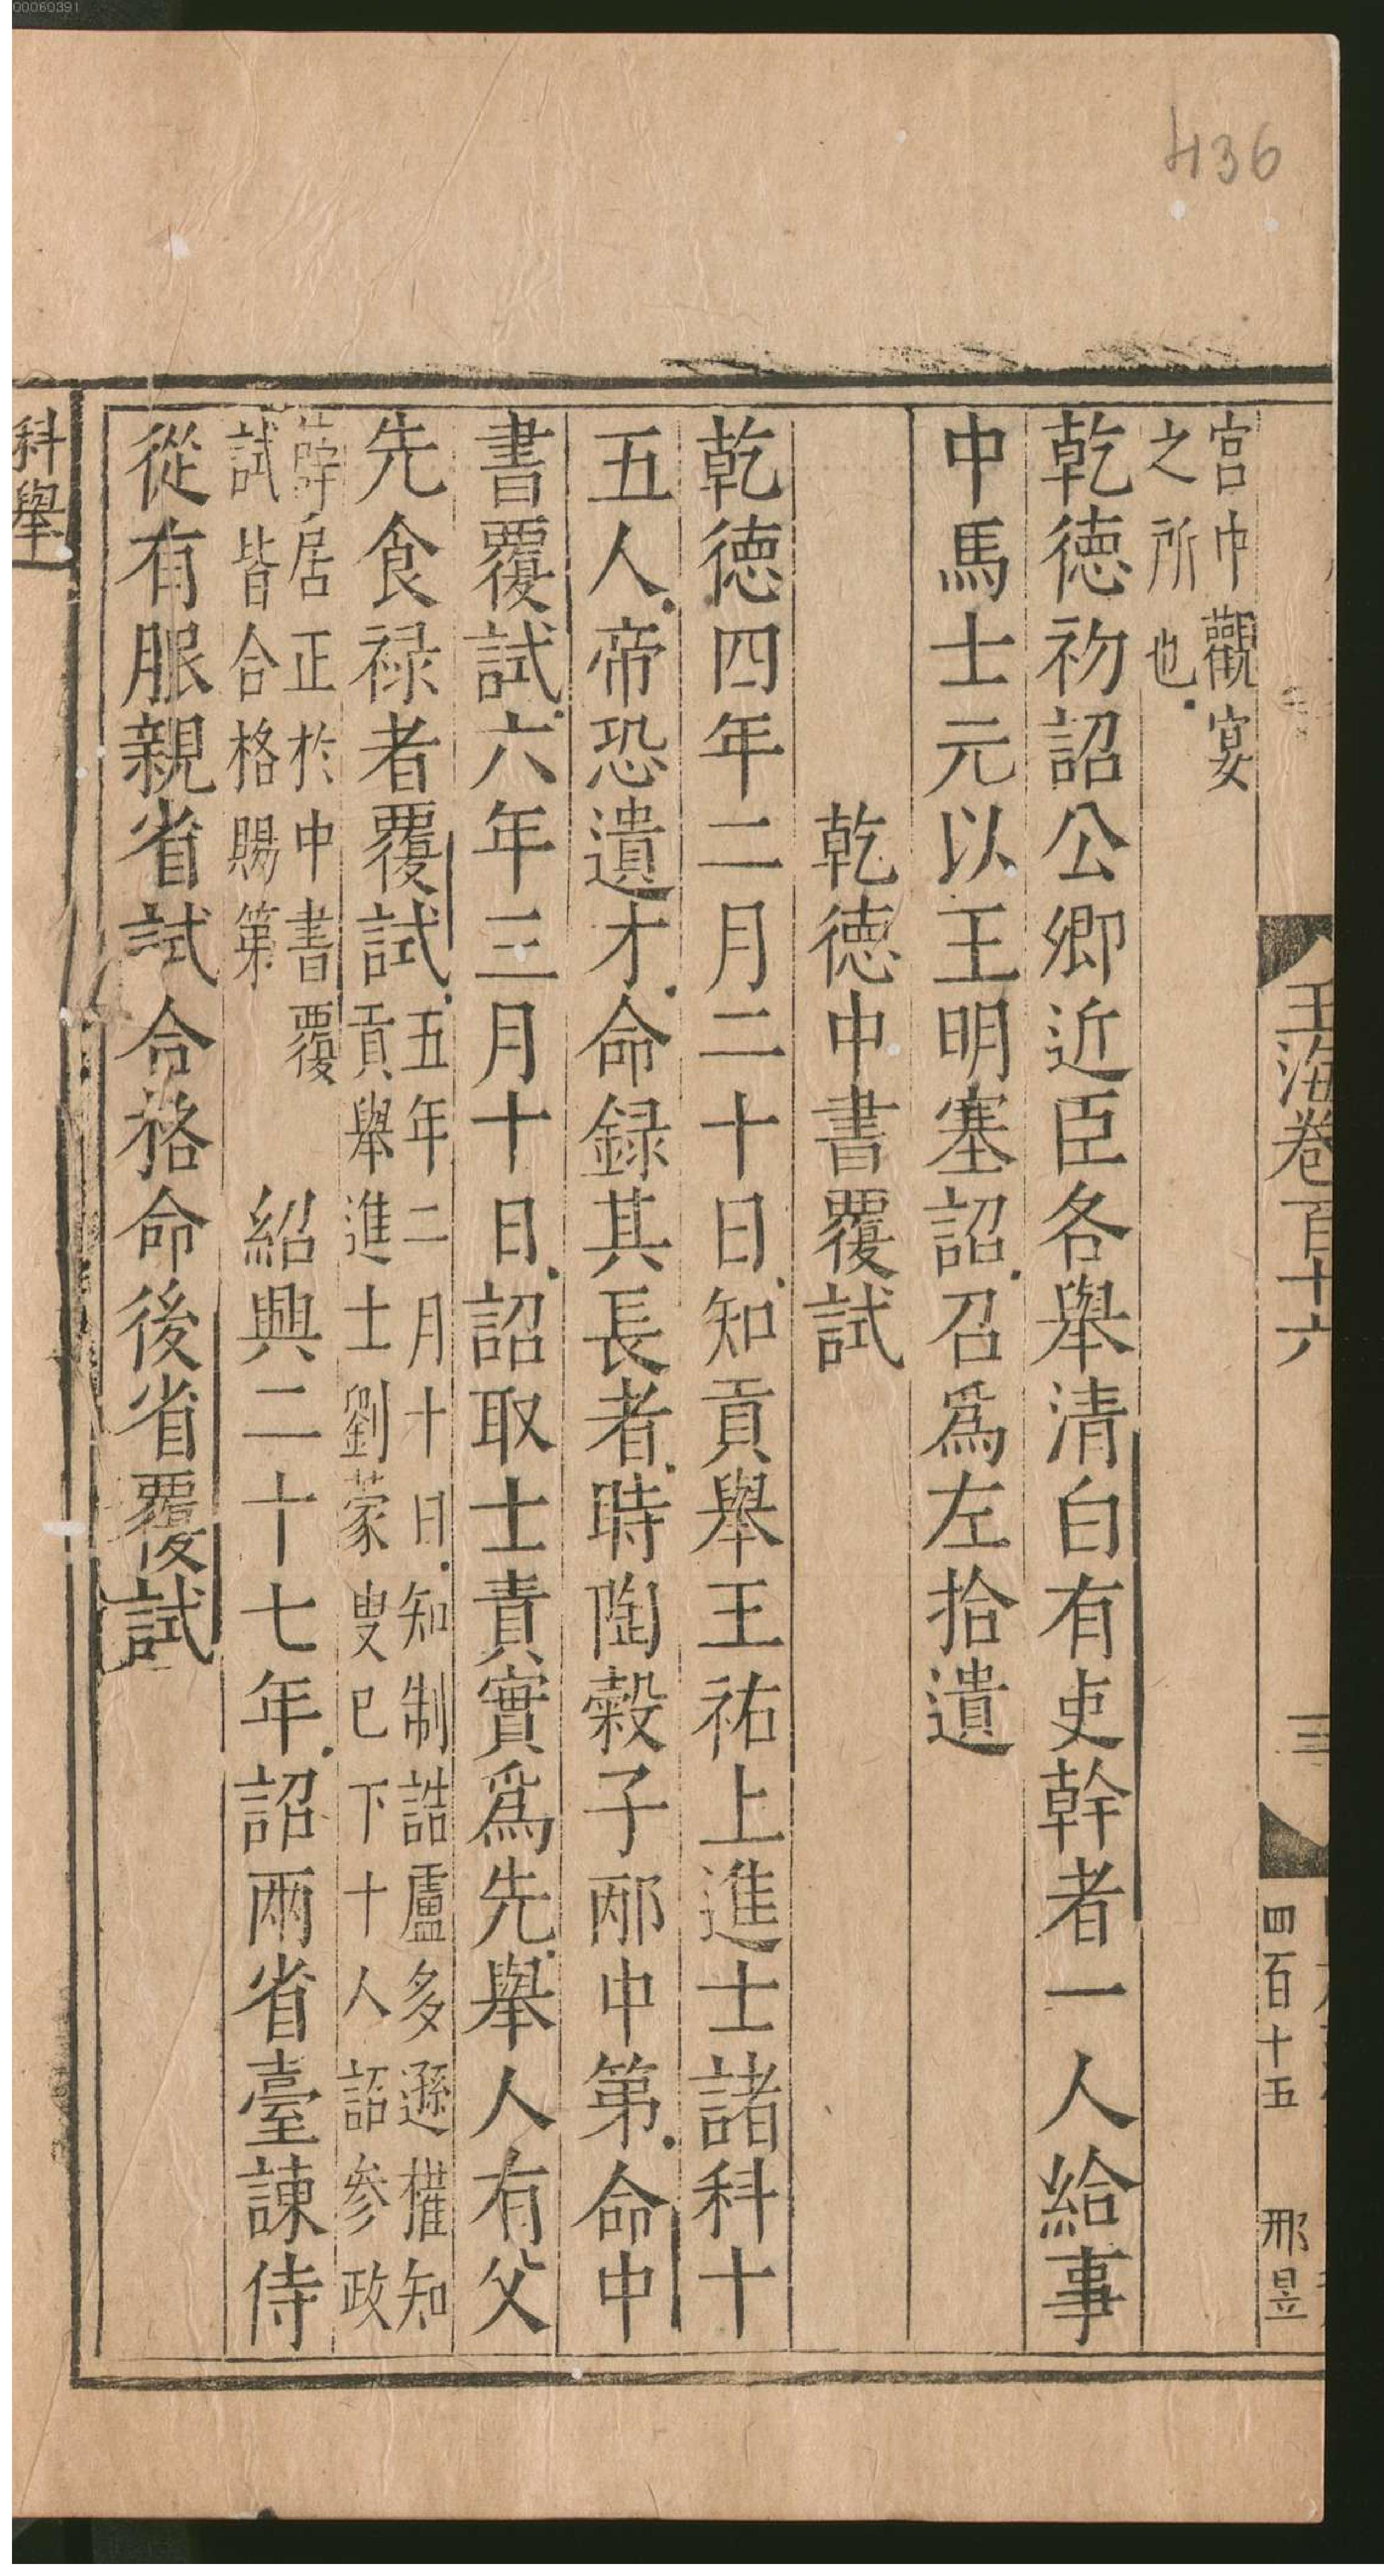 00060391
436
玉海卷百十六
三
四百十五
邢昱
宮中觀宴
之所也
乾德初詔公卿近臣各舉清白有吏幹者一人給事
中馬士元以王明塞詔召爲左拾遺
乾德中書覆試
乾德四年二月二十日知貢舉王祐上進士諸科十
五人帝恐遺才命録其長者時陶穀子邴中第命中
書覆試六年三月十日詔取士責實爲先舉人有父
先食禄者覆試五年二月十日知制誥盧多遜權知
貢舉進士劉蒙叟已下十人詔参政
薛居正於中書覆
試皆合格賜第
紹興二十七年詔兩省臺諫侍
從有服親省試合格命後省覆試
科舉